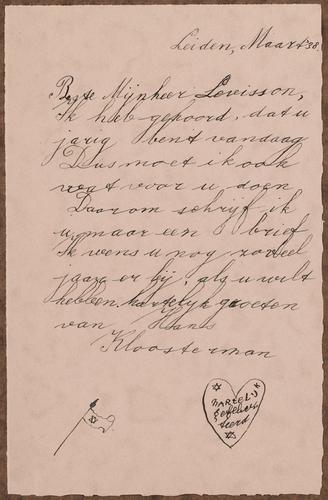 Leiden, Maart '38.
Beste Mijnheer Levisson,
Ik heb gehoord, dat u
jarig bent vandaag
Dus moet ik ook
wat voor u doen
Daarom schrijf ik
u maar een brief
Ik wens u nog zoveel
jaar er bij, als u wilt
hebben. hartelijk groeten
van Hans
Kloosterman
HARTELIJK
gefelici-
teerd